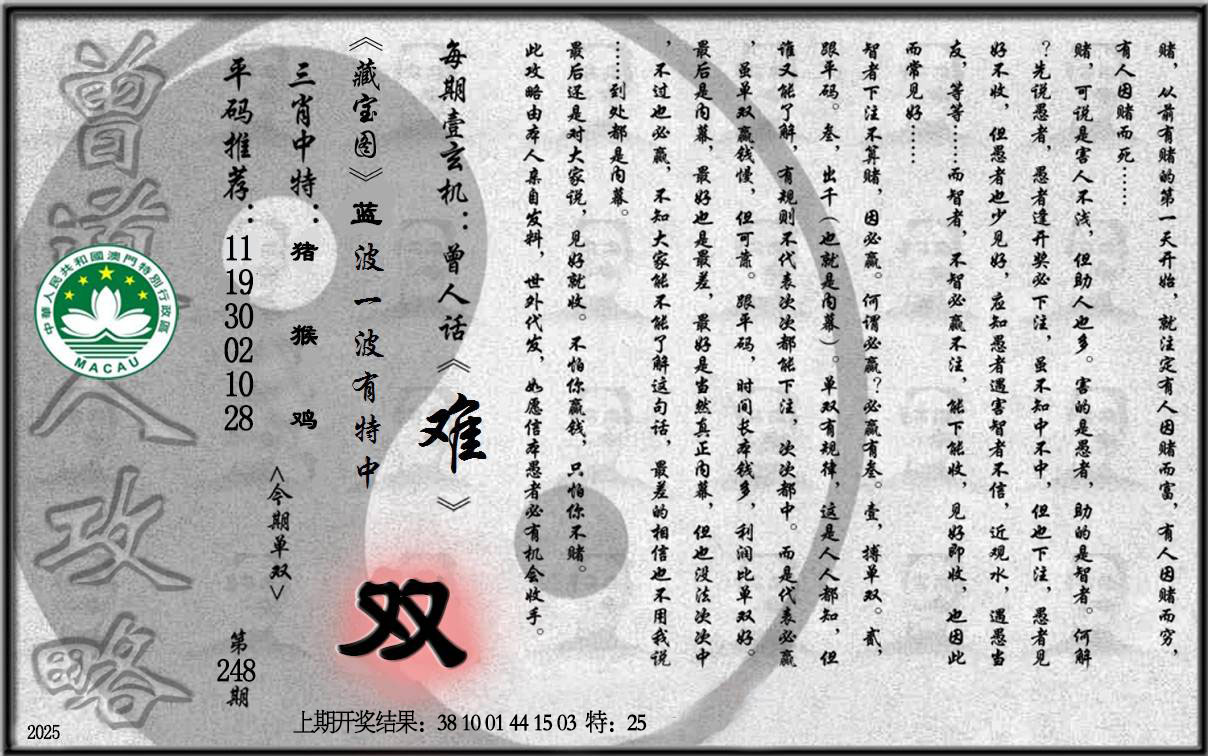 赌，从前有赌的第一天开始，就注定有人因赌而富，有人因赌而穷，
有人因赌而死……
赌，可说是害人不浅，但助人也多。害的是愚者，助的是智者。何解
？先说愚者，愚者逢开奖必下注，虽不知中不中，但也下注，愚者见
好不收，但愚者也少见好，应知愚者遇害智者不信，近观水，遇愚当
友，等等……而智者，不智必赢不注，能下能收，见好即收，也因此
而常见好……
智者下注不算赌，因必赢。何谓必赢？必赢有叁。壹，搏单双。贰，
跟平码。叁，出千（也就是内幕）。单双有规律，这是人人都知，但
谁又能了解，有规则不代表次次都能下注，次次都中。而是代表必赢
，虽单双赢钱慢，但可靠。跟平码，时间长本钱多，利润比单双好。
最后是内幕，最好也是最差，最好是当然真正内幕，但也没法次次中
，不过也必赢，不知大家能不能了解这句话，最差的相信也不用我说
……到处都是内幕。
最后还是对大家说，见好就收。不怕你赢钱，只怕你不赌。
此攻略由本人亲自发料，世外代发，如愿信本愚者必有机会收手。
每期壹玄机：曾人话《难》
《藏宝图》蓝波一波有特中
双
三肖中特：猪 猴 鸡
<今期单双>
平码推荐：11 19 30 02 10 28
第248期
曾道人攻略
中華人民共和國澳門特別行政區
MACAU
上期开奖结果：38 10 01 44 15 03 特：25
2025